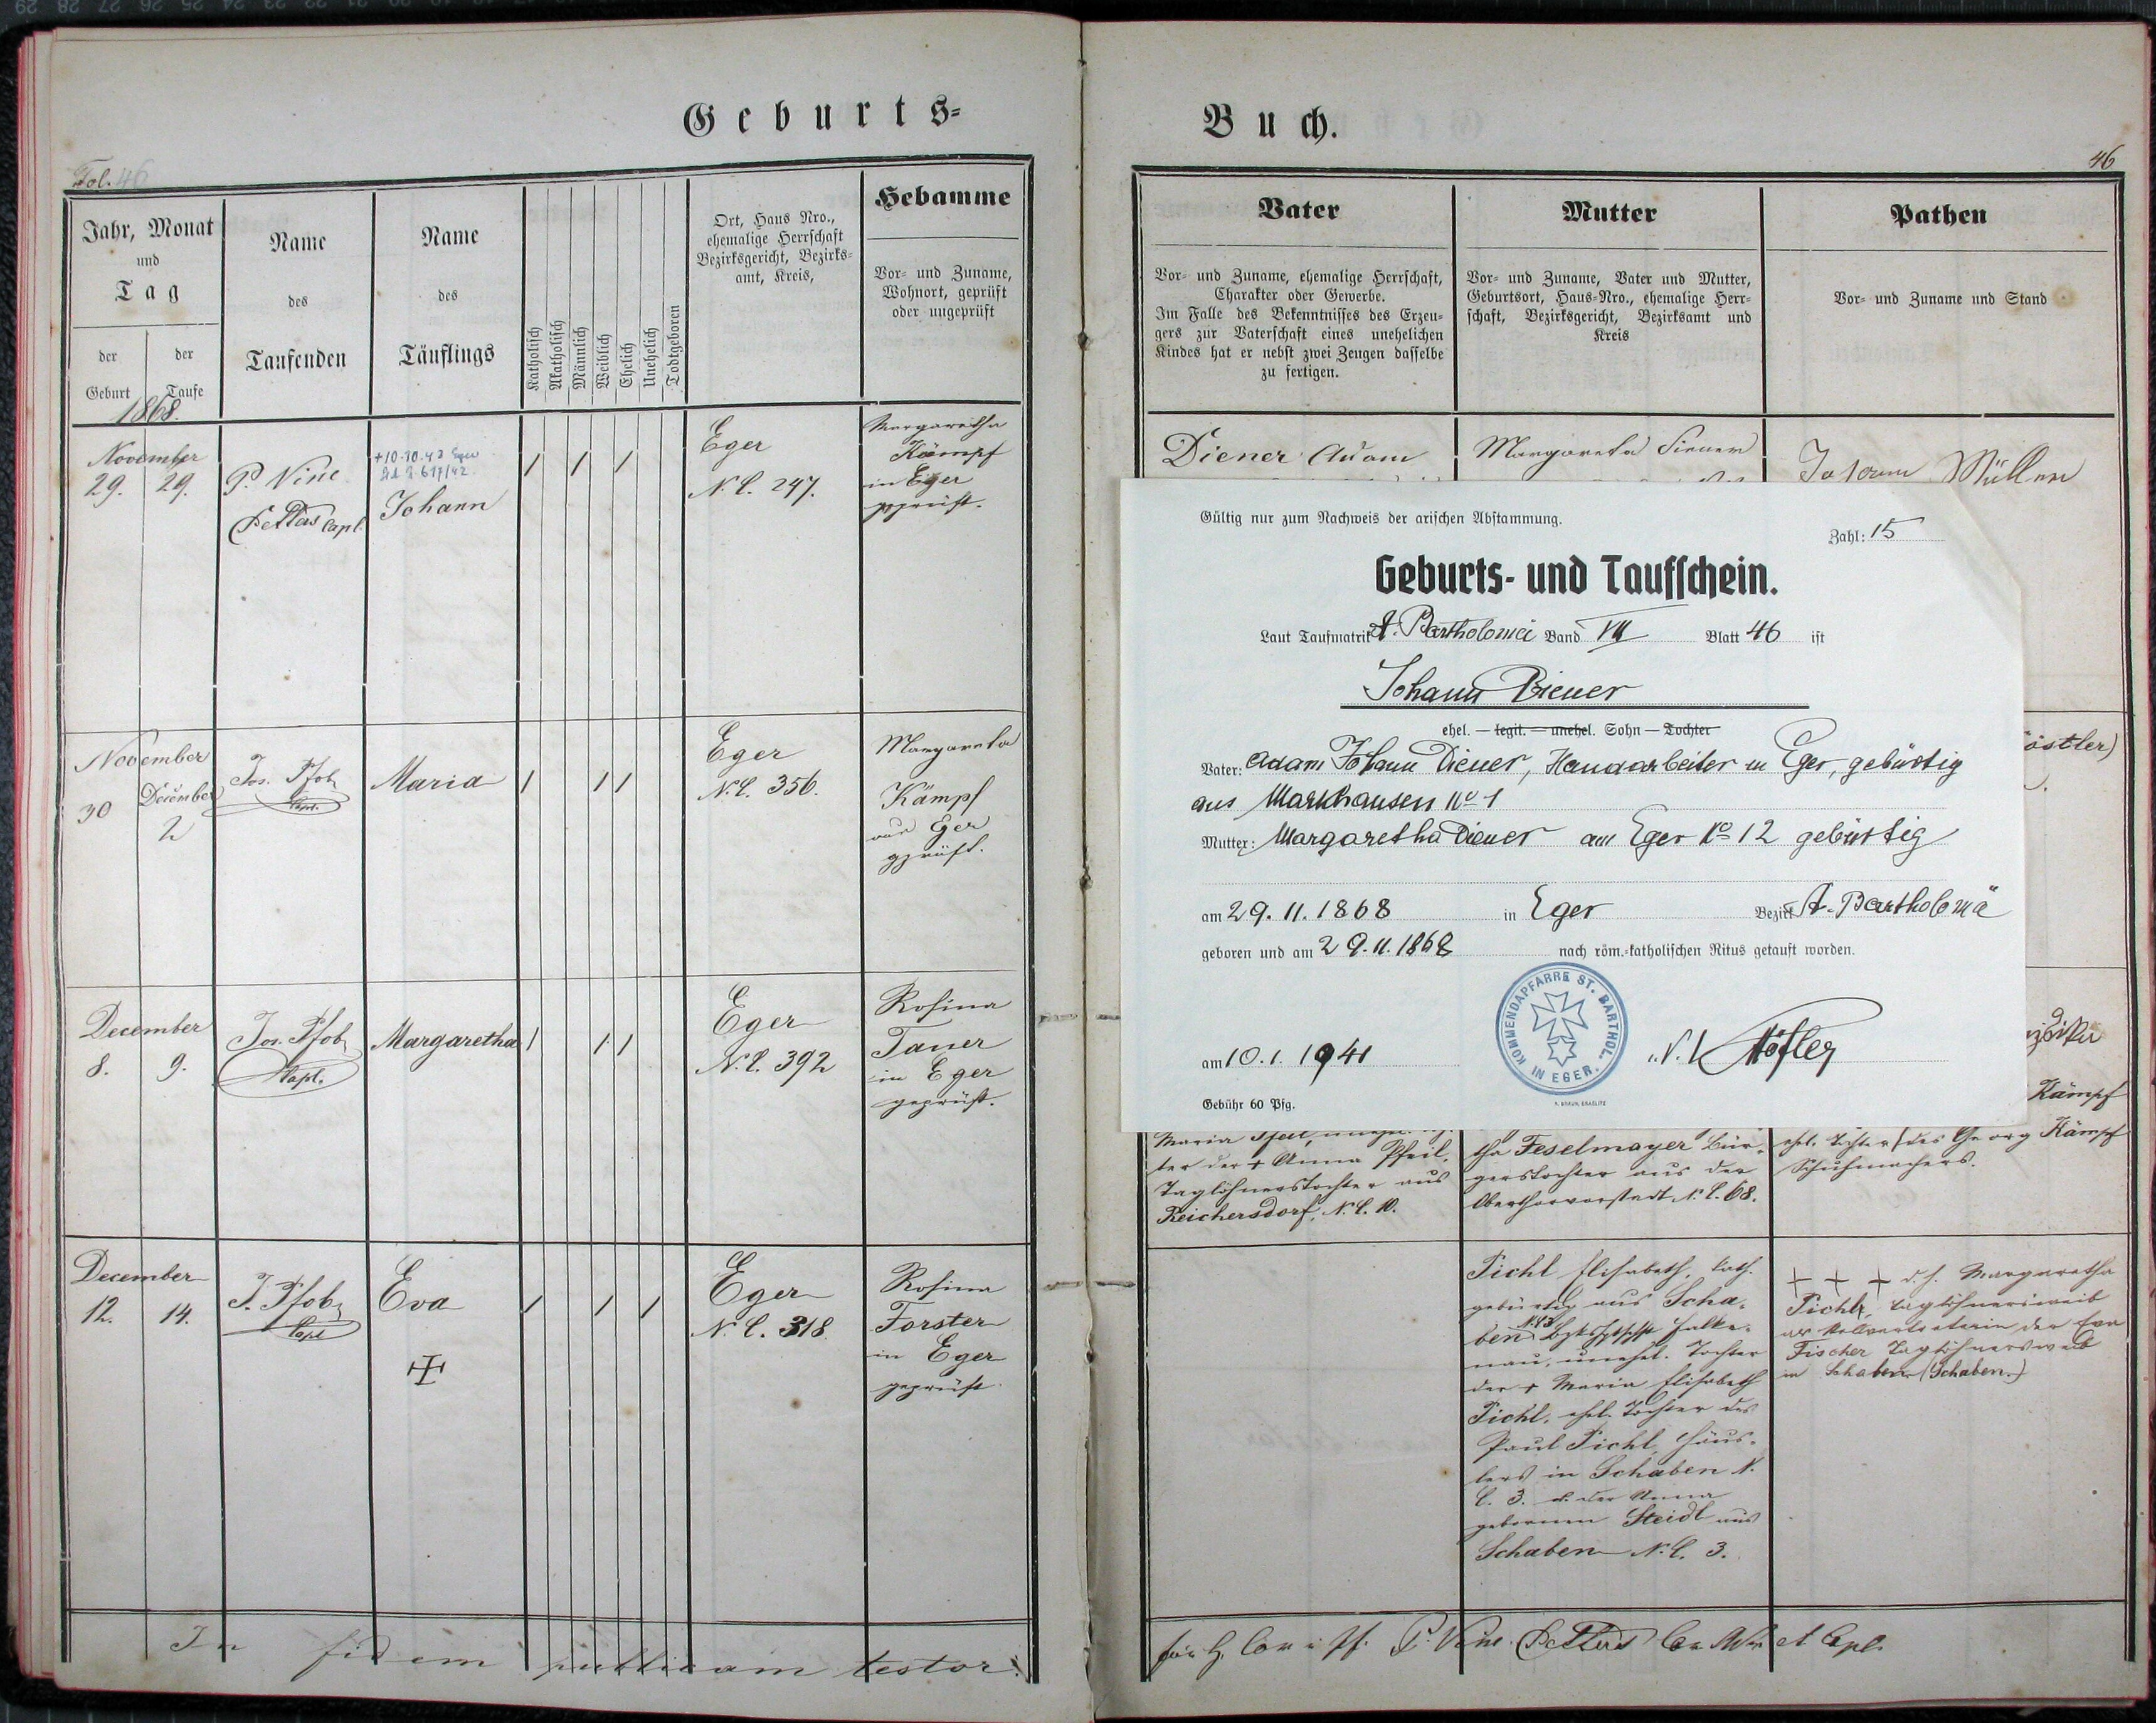 Geburts-
Fol. 46
Jahr, Monat
und
Tag
der Geburt
der Taufe
1868.
Name
des
Taufenden
Name
des
Täuflings
Katholisch
Akatholisch
Männlich
Weiblich
Ehelich
Unehelich
Todtgeboren
Ort, Haus Nro.,
ehemalige Herrschaft
Bezirksgericht, Bezirks-
amt, Kreis,
Hebamme
Vor- und Zuname,
Wohnort, geprüft
oder ungeprüft
November
29. 29.
P. Vinc.
Pettas Capl.
+10.10.42 Eger
617/42
Johann
/ / /
Eger
N.C. 247.
Margaretha
Kämpf
in Eger
geprüft.
November
30
December
2
Jos. Pfob
Capl.
Maria
/ / /
Eger
N.C. 356.
Margareta
Kämpf
aus Eger
geprüft.
December
8. 9.
Jos. Pfob
Capl.
Margaretha
/ / /
Eger
N.C. 392
Rosina
Taner
in Eger
geprüft.
December
12. 14.
J. Pfob
Capl
Eva
/ / /
Eger
N.C. 318
Rosina
Forster
in Eger
geprüft.
In fidem publicam testor:
Buch.
46
Vater
Vor- und Zuname, ehemalige Herrschaft,
Charakter oder Gewerbe.
Im Falle des Bekenntnisses des Erzeu-
gers zur Vaterschaft eines unehelichen
Kindes hat er nebst zwei Zeugen dasselbe
zu fertigen.
Mutter
Vor- und Zuname, Vater und Mutter,
Geburtsort, Haus-Nro., ehemalige Herr-
schaft, Bezirksgericht, Bezirksamt und
Kreis
Pathen
Vor- und Zuname und Stand
Diener Adam
Margareta Diener
Johann Müller
Gültig nur zum Nachweis der arischen Abstammung.
Zahl: 15
Geburts- und Taufschein.
Laut Taufmatrik St. Bartholomei Band VII Blatt 46 ist
Johann Diener
ehel. — legit. — unehel. Sohn — Tochter
Vater: Adam Johann Diener, Handarbeiter in Eger, gebürtig
aus Markhausen No 1
Mutter: Margaretha Diener aus Eger No 12 gebürtig
am 29.11.1868 in Eger Bezirk St. Bartholomä
geboren und am 29.11.1868 nach röm.-katholischen Ritus getauft worden.
KOMMENDAPFARRE ST. BARTHOL.
IN EGER.
am 10.1. 1941
Gebühr 60 Pfg.
östler)
Kämpf
ter der + Anna Pfeil,
Taglöhnerstochter aus
Reichersdorf, N.C. 10.
tha Feselmayer Bür-
gerstochter aus der
Oberthorvorstadt N.C. 68.
ehel. Tochter des Georg Kämpf
Schuhmachers.
Pichl Elisabeth, kath.
gebürtig aus Scha-
ben N. 3 Falke-
nau, unehel. Tochter
der + Maria Elisabeth
Pichl, ehel. Tochter des
Paul Pichl, Häus-
lers in Schaben N.
C. 3. u. der Anna
gebornen Steidl aus
Schaben N.C. 3.
+ + + d. h. Margaretha
Pichl, Taglöhnersweib
als Stellvertreterin der Eva
Fischer Taglöhnersweib
in Schaben (Schaben.)
P. Vinc. Pettas et Capl.